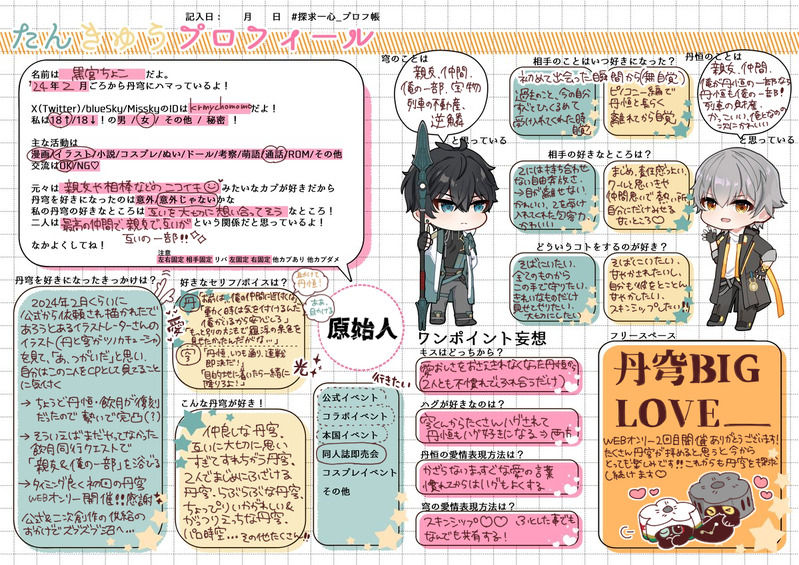 記入日： 月 日 #探求一心_プロフ帳
たんきゅうプロフィール
名前は 黒宮ちょこ だよ。
'24年2月ごろから丹穹にハマっているよ！
X(Twitter)/blueSky/MisskyのIDは krmychomomo だよ！
私は18↑/18↓！の男/女/その他/秘密！
主な活動は
漫画/イラスト/小説/コスプレ/ぬい/ドール/考察/萌語/通話/ROM/その他
交流はOK/NG♡
元々は 親友や相棒などのニコイチ みたいなカプが好きだから
丹穹を好きになったのは意外/意外じゃないかな
私の丹穹の好きなところは互いを大切に想い合ってそうなところ！
二人は最高の仲間で、親友で、互いが という関係だと思っているよ！
互いの一部!!
なかよくしてね！
注意
左右固定 相手固定 リバ 左固定 右固定 他カプあり 他カプダメ
穹のことは
親友、仲間、
俺の一部、宝物
列車の不動産、
逆鱗
と思っている
丹恒のことは
親友、仲間、
俺が丹恒の一部なら
丹恒も俺の一部！
列車の財産、
かっこいい、俺となのの
次にかわいい
と思っている
相手のことはいつ好きになった？
初めて出会った瞬間から(無自覚)
過去のこと、今の自分
ねとひっくるめて
受け入れてくれた時
自覚
ピノコニー編で
丹恒と長らく
離れてから自覚
相手の好きなところは？
2には持ち合わせ
ない自由奔放さ
→目が離せない
かわいい、2を受け
入れてくれた包容力、
かわいい
まじめ、責任感つよい、
クールと思いきや
仲間思いで熱い所
自分にだけみせる
甘いところ♡
どういうコトをするのが好き？
そばにいたい、
全てのものから
この手で守りたい、
きれいなものだけ
見せてやりたい、
大切にしたい
そばにいてほしい、
甘やかされたいし、
自分も彼をとことん
甘やかしたい、
スキンシップしたい!!
丹穹を好きになったきっかけは？
2024年2月くらいに
公式から依頼され描かれたで
あろうとあるイラストレーターさんの
イラスト(丹と穹がツノカチューシャ)
を見て、「あ、つがいだ」と思い、
自分はこの二人をCPとして見てること
に気付く
→ちょうど丹恒・飲月が復刻
だったので勢いで完凸(？)
→そういえばまだやってなかった
飲月同行クエストで
「親友&俺の一部」を浴びる
→タイミング良く初回の丹穹
WEBオンリー開催!!感謝
公式&二次創作の供給の
おかげでズブズブ沼へ…
好きなセリフ/ボイスは？
丹
「お前は、俺の仲間に近付くな」
「動く時は気をつけるんだ
俺がいるから安心しろ」
「もっとゆっくりお前達まで羅浮の景色を
見せたかったんだがな…」
穹
「丹恒、いつも通り、速戦
即決だ！」
「目的地に着いたら一緒に
降りるよ！」
あがけて
丹恒！
ああ、
目かける
原始人
光
こんな丹穹が好き！
仲良しな丹穹、
互いに大切に思い
すぎてすれちがう丹穹、
2人でまじめにふざける
丹穹、らぶらぶな丹穹、
ちょっぴりいかがわしい&
がっつりえっちな丹穹、
パロ時空…その他たくさん!!
行きたい
公式イベント
コラボイベント
本国イベント
同人誌即売会
コスプレイベント
その他
ワンポイント妄想
キスはどっちから？
愛おしさをおさえきれなくなった丹恒から
(2人とも不慣れで、ふれ合うだけ)
ハグが好きなのは？
穹くんからたくさんハグされて
丹恒もハグ好きになる⇒両方
丹恒の愛情表現方法は？
かざらないまっすぐな愛の言葉
慣れてからはハグもよくする
穹の愛情表現方法は？
スキンシップ♡♡ ふとした事でも
なんでも共有する！
フリースペース
丹穹BIG
LOVE__
WEBオンリー2回目開催ありがとうございます！
たくさん丹穹が拝めると思うと今から
とっても楽しみです!!これからも丹穹を探求
し続けます♡